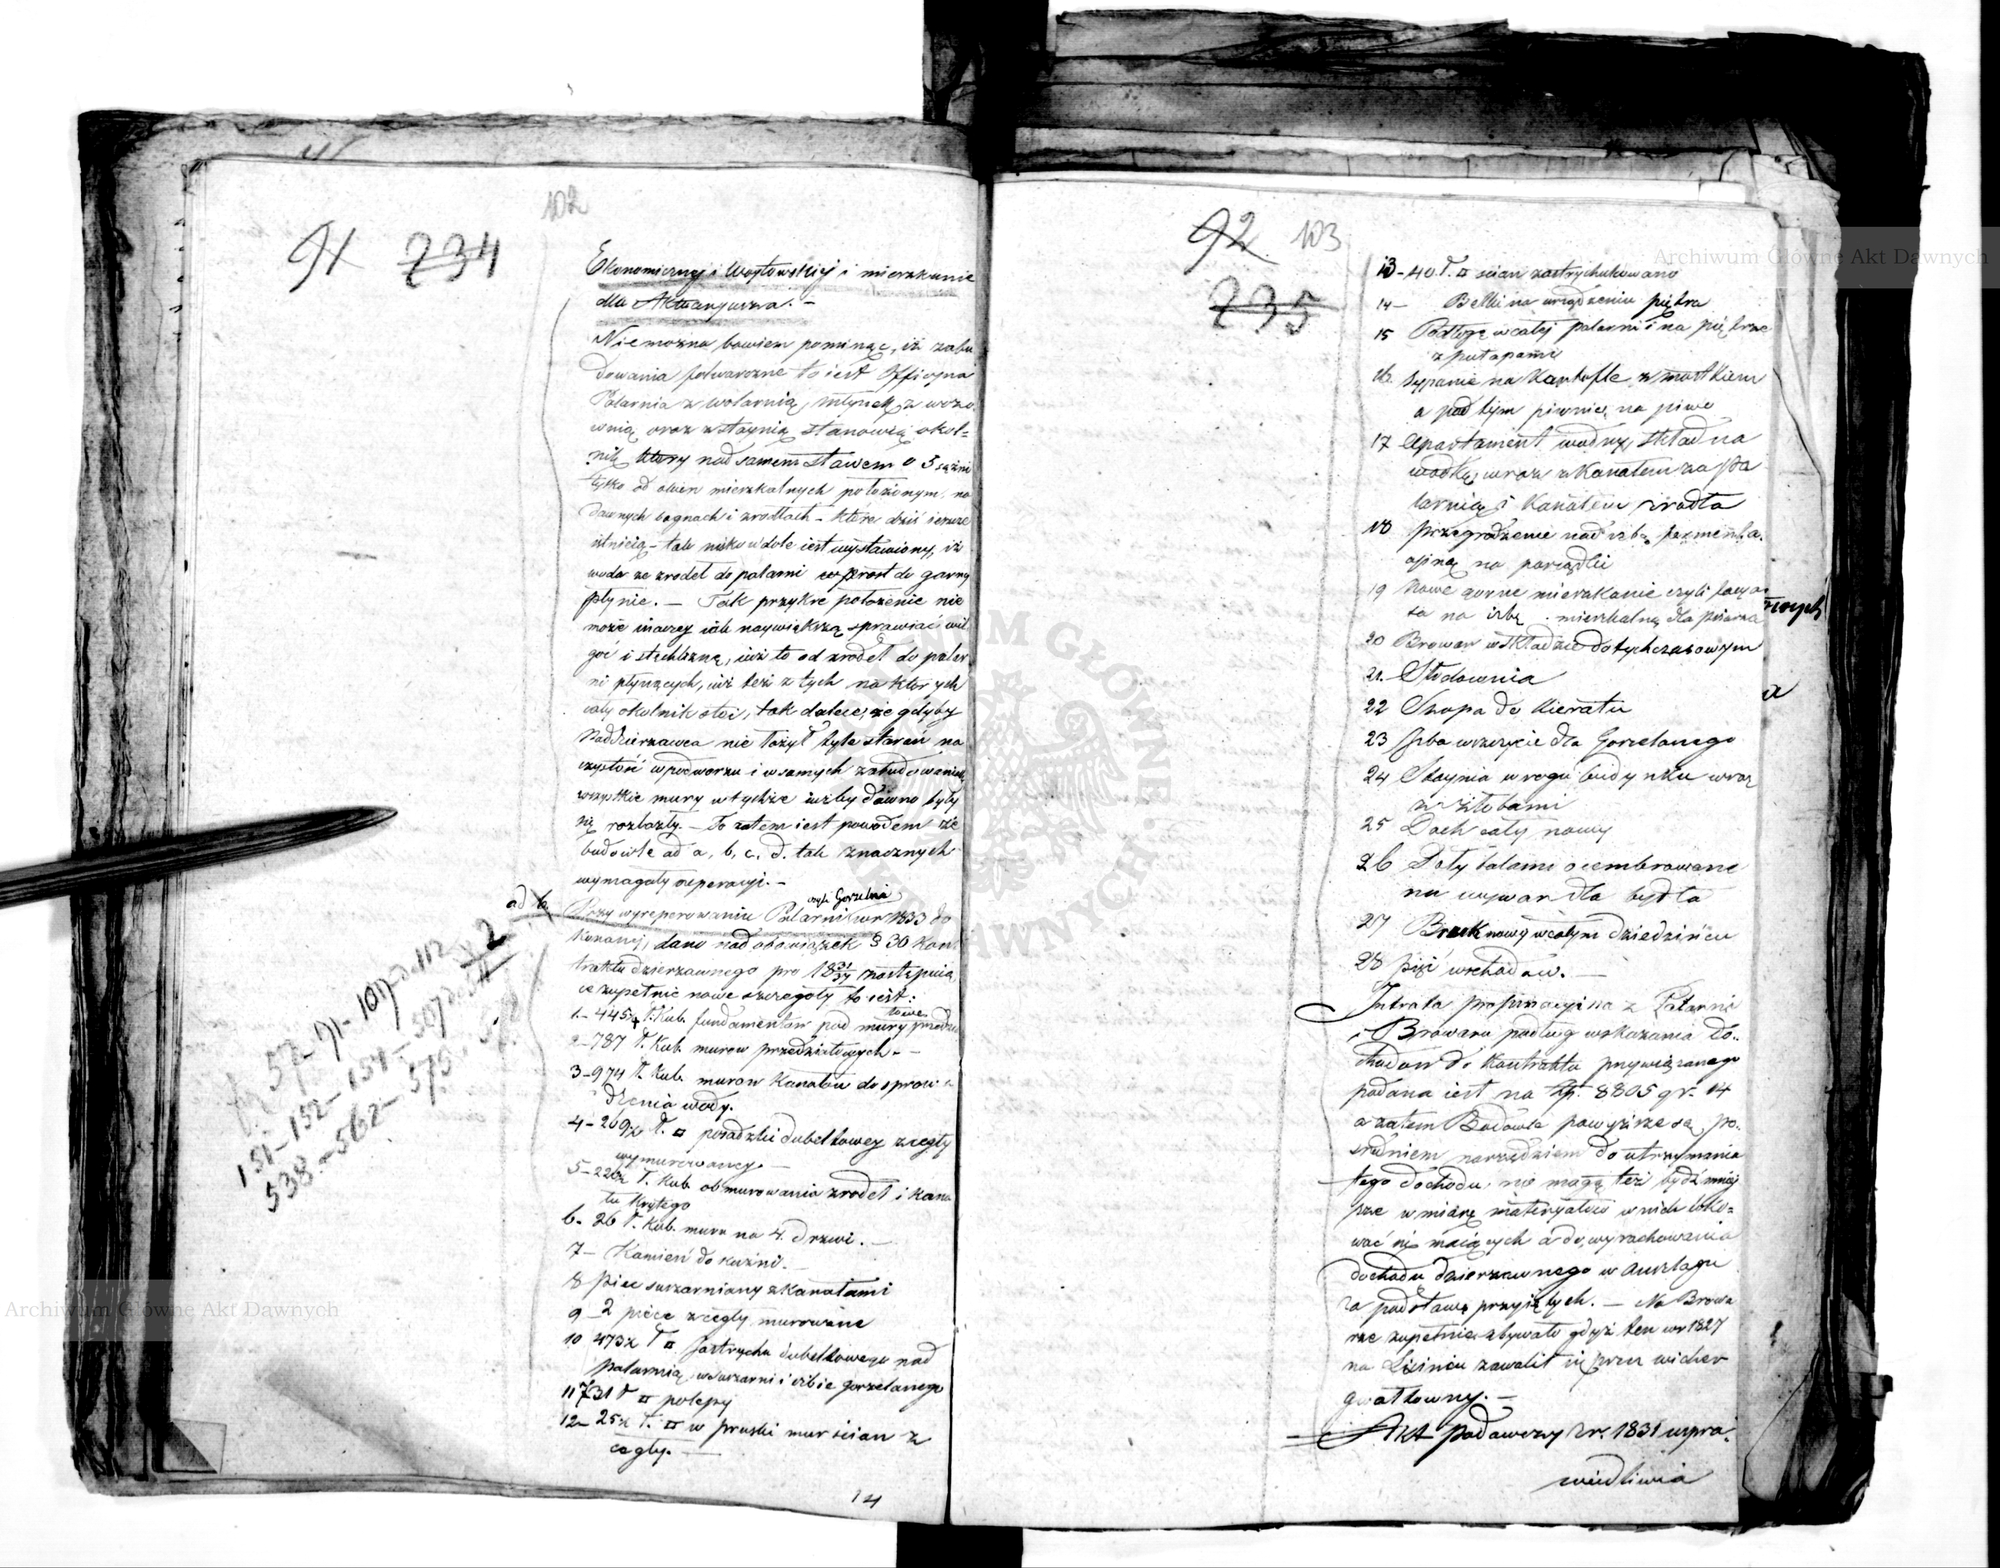 102
91 234
Ekonomiczney i Woytowskiey i mieszkanie
dla Aktuaryusza. –
Niemożna bowiem pominąć, iż zabu
dowania folwarczne to iest Officyna
Palarnia z wolarnią, młynek z wozo
wnią oraz z staynią stanowią okol=
nik który nad samem stawem o 5 sążni
tylko od okien mieszkalnych położonym, na
dawnych bagnach i zrodłach – które dziś ieszcze
istnieią – tak nisko w dole iest wystawiony, iż
woda ze zrodeł do palarni wprost do
płynie. – Tak przykre położenie nie
może inaczey iak naywiększą sprawiać wil
goć i stęchliznę, iuż to od zrodeł do palar
ni płynących, iuż też z tych na których
cały okolnik stoi, tak dalece, że gdyby
Naddzierzawca nie łożył tyle starań na
czystość w podworzu i w samych zabudowaniach
wszystkie mury w tychże iużby dawno były
się rozlazły. – To zatem iest powodem że
budowle ad a, b, c, d. tak znacznych
wymagały reperacyi. –
czyli Gorzelnia
ad b. Przy wyreperowaniu Palarni w r 1833 do
konaney, dano nad obowiązek § 36 kon
traktu dzierzawnego pro 18 31/37 następuią
ce zupełnie nowe szczegoły to iest:
1. – 445½ ł. Kub. fundamentów pod mury przedzia
łowe
2 – 787 ł. Kub. murow przedziałowych. –
3 – 974 ł. Kub. murow Kanałów do sprowa
dzenia wody.
4 – 209½ ł. □ posadzki dubeltowey z cegły
wymurowaney. –
5 – 220½ ł. Kub. obmurowania zrodeł i kana
łu krytego
6. – 26 ł. Kub. muru na 4. drzwi. –
7 – Kamień do kuźni. –
8 piec suszarniany z kanałami
9 – 2 piece z cegły murowane
10 473½ ł □ jastrychu dubeltowego nad
palarnią, w suszarni i izbie gorzelanego
11 731 ł □ polepy
12 – 25½ ł. □ w pruski mur ścian z
cegły. –
14
57 – 91 – 109 – 112
151 – 152 – 154 – 507
538. – 562 – 575
92 103
235
13 – 40 ł. □ ścian zastrychulowano
14 – Belki na urządzeniu piętra
15 Podłogę w całej palarni i na piętrze
z pułapami
16. sypanie na Kartofle z mostkiem
a pod tym piwnicę na piwo
17 Apartament wodny, skład na
wodkę, wraz z Kanałem za Pa
larnią i Kanałem zrodła
18 przegrodzenie nad izbą fermenta
cyiną na porządki
19 Nowe gorne mieszkanie czyli facya
ta na izbę mieszkalną dla pisarza
20 Browar w składzie dotychczasowym
21. Słodownia
22 Szopa do Kieratu
23 Izba w szczycie dla Gorzelanego
24 Staynia w rogu budynku wraz
z żłobami
25 Dach cały nowy
26 Doły balami ocembrowane
na wywar dla bydła
27 Bruk nowy w całym dziedzińcu
28 pięć wschodów. –
Intrata propinacyina z Palarni
i Browaru podług wskazania do=
chodów do Kontraktu przywiązanego
podana iest na Zp. 8805 gr. 14
a zatem Budowle powyższe są, po=
średniem narzędziem do utrzymania
tego dochodu, nie mogą też bydź mniej
sze w miarę materyałów w nich loko=
wać się maiących a do wyrachowania
dochodu dzierzawnego w Anszlagu
za podstawę przyiętych. – Na Browa
rze zupełnie zbywało gdyż ten w r 1827
na Lesińcu zawalił się przez wicher
gwałtowny. –
Akt podawczy z r. 1831 uspra=
wiedliwia
Archiwum Główne Akt Dawnych
Archiwum Główne Akt Dawnych
ARCHIWUM GŁÓWNE AKT DAWNYCH